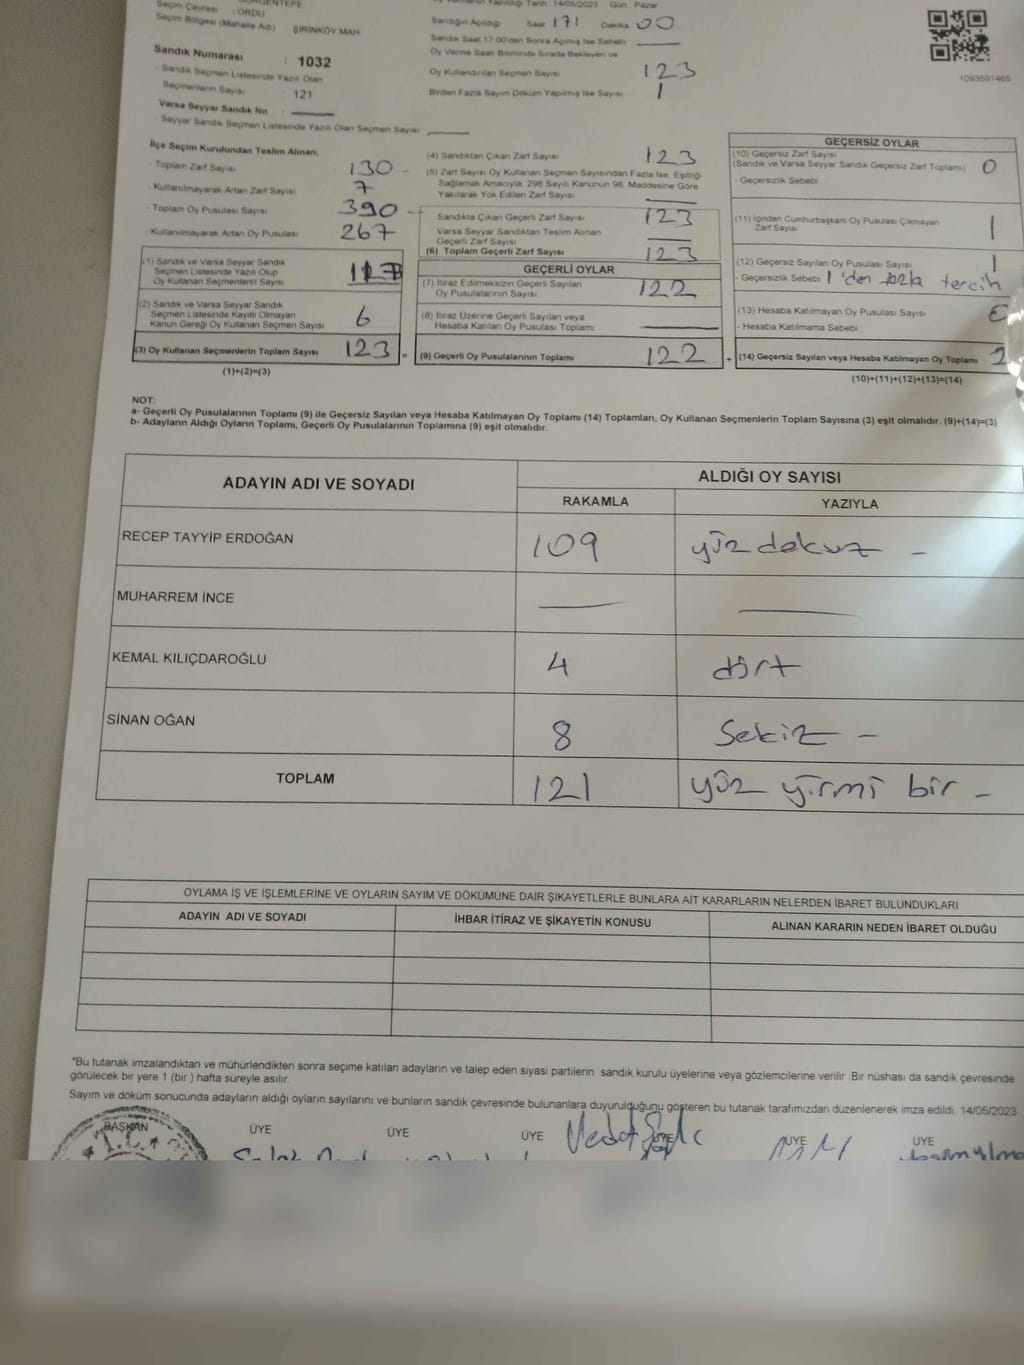 Seçim Çevresi : ORDU
Seçim Bölgesi (Mahalle Adı) ŞIRINKÖY MAH.
Sandık Numarası : 1032
- Sandık Seçmen Listesinde Yazılı Olan
Seçmenlerin Sayısı : 121
Varsa Seyyar Sandık No :
- Seyyar Sandık Seçmen Listesinde Yazılı Olan Seçmen Sayısı
Tarih 14/05/2023 Gün Pazar
Sandığın Açıldığı Saat 17 Dakika 00
Sandık Saat 17:00'den Sonra Açılmış İse Sebebi
Oy Verme Saati Bitiminde Sırada Bekleyen ve
Oy Kullandırılan Seçmen Sayısı 123
Birden Fazla Sayım Döküm Yapılmış İse Sayısı 1
1093591465
İlçe Seçim Kurulundan Teslim Alınan:
- Toplam Zarf Sayısı 130 -
- Kullanılmayarak Artan Zarf Sayısı 7
- Toplam Oy Pusulası Sayısı 390 -
- Kullanılmayarak Artan Oy Pusulası 267
(1) Sandık ve Varsa Seyyar Sandık
Seçmen Listesinde Yazılı Olup
Oy Kullanan Seçmenlerin Sayısı 117
(2) Sandık ve Varsa Seyyar Sandık
Seçmen Listesinde Kayıtlı Olmayan
Kanun Gereği Oy Kullanan Seçmen Sayısı 6
(3) Oy Kullanan Seçmenlerin Toplam Sayısı 123 =
(1)+(2)=(3)
(4) Sandıktan Çıkan Zarf Sayısı 123
(5) Zarf Sayısı Oy Kullanan Seçmen Sayısından Fazla İse, Eşitliği
Sağlamak Amacıyla, 298 Sayılı Kanunun 98. Maddesine Göre
Yakılarak Yok Edilen Zarf Sayısı
Sandıkta Çıkan Geçerli Zarf Sayısı 123
Varsa Seyyar Sandıktan Teslim Alınan
Geçerli Zarf Sayısı
(6) Toplam Geçerli Zarf Sayısı 123
GEÇERLİ OYLAR
(7) İtiraz Edilmeksizin Geçerli Sayılan
Oy Pusulalarının Sayısı 122
(8) İtiraz Üzerine Geçerli Sayılan veya
Hesaba Katılan Oy Pusulası Toplamı
(9) Geçerli Oy Pusulalarının Toplamı 122 +
GEÇERSİZ OYLAR
(10) Geçersiz Zarf Sayısı 0
(Sandık ve Varsa Seyyar Sandık Geçersiz Zarf Toplamı)
- Geçersizlik Sebebi
(11) İçinden Cumhurbaşkanı Oy Pusulası Çıkmayan
Zarf Sayısı 1
(12) Geçersiz Sayılan Oy Pusulası Sayısı 1
- Geçersizlik Sebebi 1'den fazla tercih
(13) Hesaba Katılmayan Oy Pusulası Sayısı 0
- Hesaba Katılmama Sebebi
(14) Geçersiz Sayılan veya Hesaba Katılmayan Oy Toplamı 2
(10)+(11)+(12)+(13)=(14)
NOT:
a- Geçerli Oy Pusulalarının Toplamı (9) ile Geçersiz Sayılan veya Hesaba Katılmayan Oy Toplamı (14) Toplamları, Oy Kullanan Seçmenlerin Toplam Sayısına (3) eşit olmalıdır. (9)+(14)=(3)
b- Adayların Aldığı Oyların Toplamı, Geçerli Oy Pusulalarının Toplamına (9) eşit olmalıdır.
ADAYIN ADI VE SOYADI
ALDIĞI OY SAYISI
RAKAMLA YAZIYLA
RECEP TAYYİP ERDOĞAN 109 yüz dokuz -
MUHARREM İNCE
KEMAL KILIÇDAROĞLU 4 dört
SİNAN OĞAN 8 Sekiz -
TOPLAM 121 yüz yirmi bir -
OYLAMA İŞ VE İŞLEMLERİNE VE OYLARIN SAYIM VE DÖKÜMÜNE DAİR ŞİKAYETLERLE BUNLARA AİT KARARLARIN NELERDEN İBARET BULUNDUKLARI
ADAYIN ADI VE SOYADI İHBAR İTİRAZ VE ŞİKAYETİN KONUSU ALINAN KARARIN NEDEN İBARET OLDUĞU
*Bu tutanak imzalandıktan ve mühürlendikten sonra seçime katılan adayların ve talep eden siyasi partilerin sandık kurulu üyelerine veya gözlemcilerine verilir. Bir nüshası da sandık çevresinde
görülecek bir yere 1 (bir) hafta süreyle asılır.
Sayım ve döküm sonucunda adayların aldığı oyların sayılarını ve bunların sandık çevresinde bulunanlara duyurulduğunu gösteren bu tutanak tarafımızdan düzenlenerek imza edildi. 14/05/2023
BAŞKAN ÜYE ÜYE ÜYE ÜYE ÜYE ÜYE
T.C.
Vedat